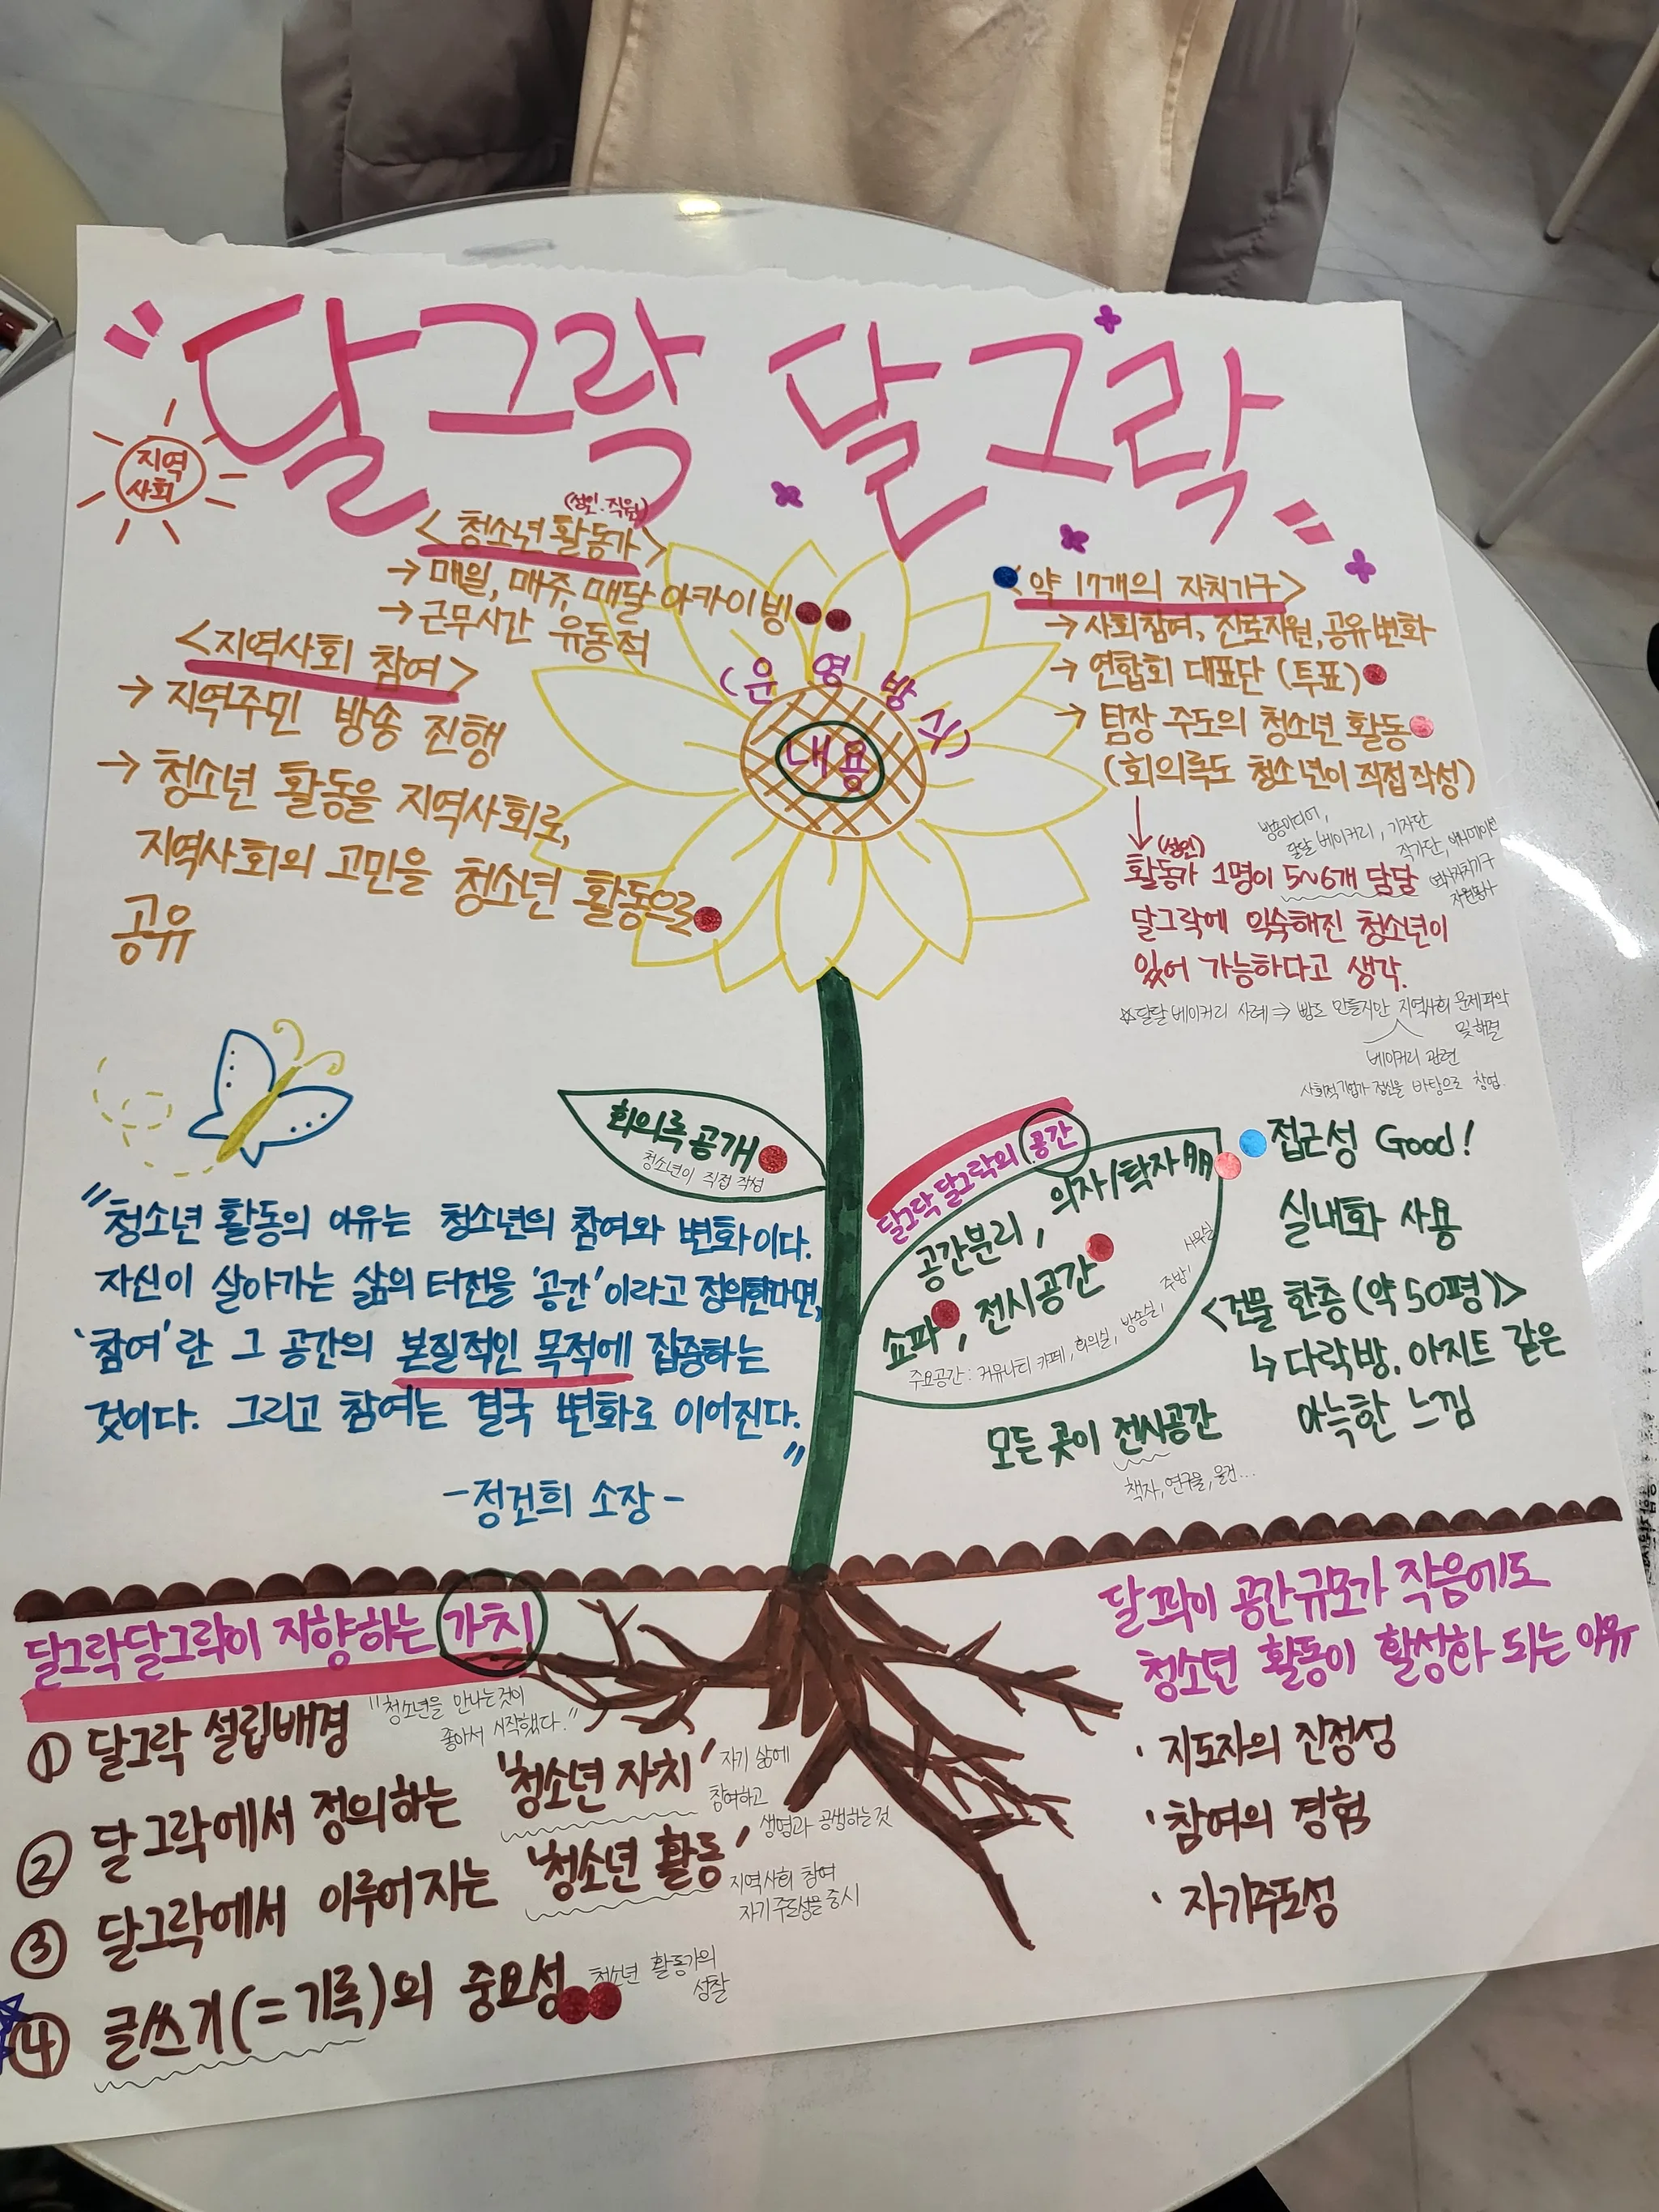 "달그락 달그락"
지역
사회
(성인·직원)
<청소년 활동가>
→ 매일, 매주, 매달 아카이빙
→ 근무시간 유동적
<지역사회 참여>
→ 지역주민 방송 진행
→ 청소년 활동을 지역사회로,
지역사회의 고민을 청소년 활동으로
공유
(운영방식)
내용
<약 17개의 자치기구>
→ 사회참여, 진로지원, 공유변화
→ 연합회 대표단 (투표)
→ 팀장 주도의 청소년 활동
(회의록도 청소년이 직접 작성)
방송미디어,
달달 베이커리, 기자단
작가단, 애니메이션
역사자치기구
자원봉사
(성인)
활동가 1명이 5~6개 담달
달그락에 익숙해진 청소년이
있어 가능하다고 생각.
☆달달 베이커리 사례 ⇒ 빵도 만들지만 지역사회 문제파악
및 해결
베이커리 관련
사회적기업가 정신을 바탕으로 창업.
회의록 공개
청소년이 직접 작성
"청소년 활동의 이유는 청소년의 참여와 변화이다.
자신이 살아가는 삶의 터전을 '공간'이라고 정의한다면,
'참여'란 그 공간의 본질적인 목적에 집중하는
것이다. 그리고 참여는 결국 변화로 이어진다."
-정건희 소장-
달그락달그락의 공간
의자/탁자 多
공간분리,
쇼파, 전시공간
주요공간: 커뮤니티 카페, 회의실, 방송실, 주방, 사무실
모든 곳이 전시공간
책자, 연구물, 물건...
접근성 Good!
실내화 사용
<건물 한층 (약 50평)>
↳ 다락방, 아지트 같은
아늑한 느낌
달그락달그락이 지향하는 가치
① 달그락 설립배경
"청소년을 만나는것이
좋아서 시작했다."
② 달그락에서 정의하는 '청소년 자치'
자기 삶에
참여하고
생명과 공생하는 것
③ 달그락에서 이루어지는 '청소년 활동'
지역사회 참여
자기주도성을 중시
④ 글쓰기(=기록)의 중요성
청소년 활동가의
성찰
달그락이 공간규모가 작음에도
청소년 활동이 활성화 되는 이유
· 지도자의 진정성
· 참여의 경험
· 자기주도성